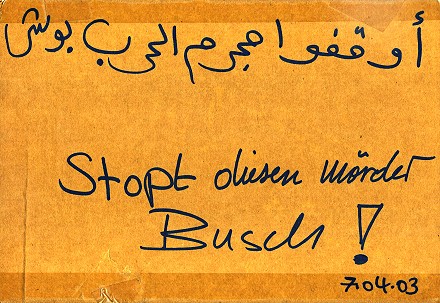 أوقفوا مجرم الحرب بوش
Stopt diesen mörder
Busch!
7.04.03